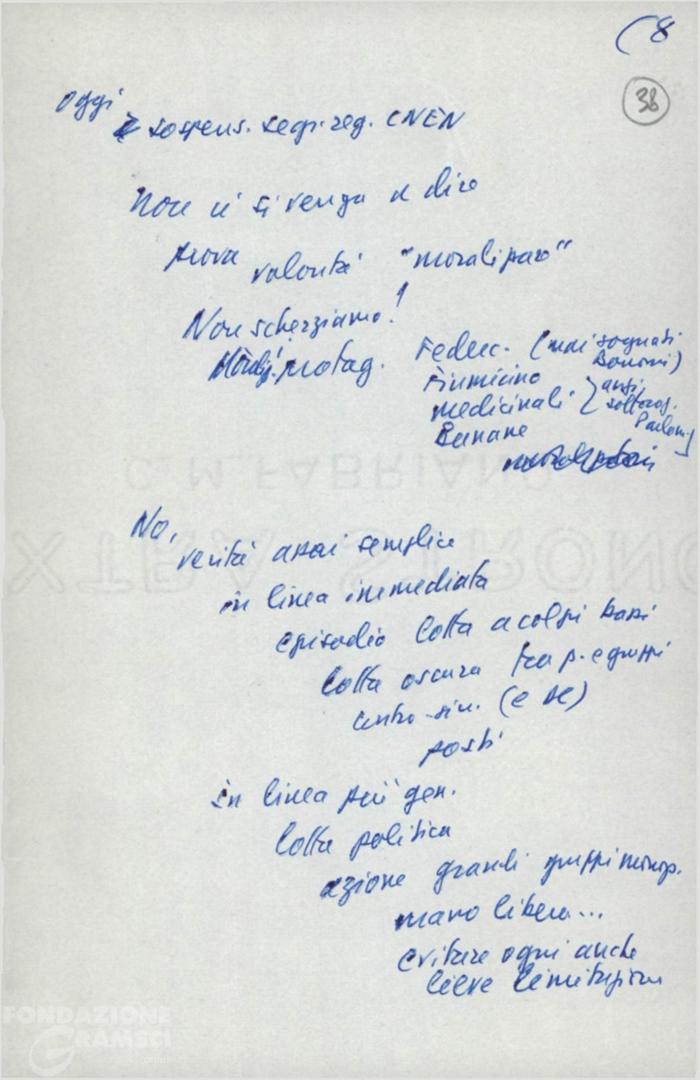 (8
38
oggi
sospens. segr. reg. CNEN
Non ci si venga a dire
prova volontà "moralizzare"
Non scherziamo!
protag. Federc. (mai sognati Bonomi)
Fiumicino
medicinali } anzi sottoseg.
Banane
No,
verità assai semplice
in linea immediata
episodio lotta a colpi bassi
lotta oscura tra p. e gruppi
centro-sin. (e DC)
posti
in linea più gen.
lotta politica
azione grandi gruppi monop.
mano libera...
evitare ogni anche
lieve limitazione
C. M. FABRIANO
EXTRA STRONG
FONDAZIONE
GRAMSCI